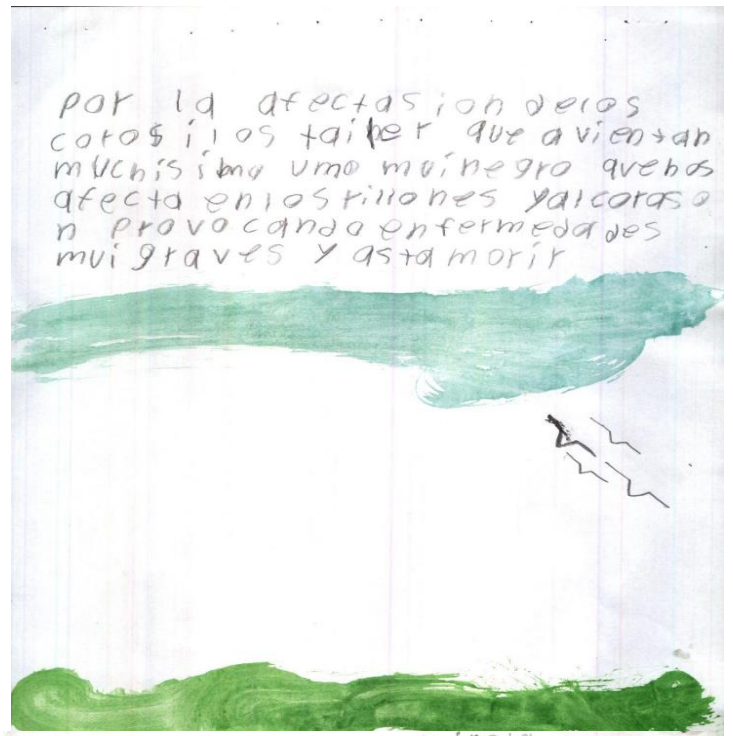 por la afectasion delos
corosilos taiber que avientan
muchisimo umo muinegro quenos
afecta enlosrillones yalcoraso
n provocando enfermedades
muigraves y asta morir